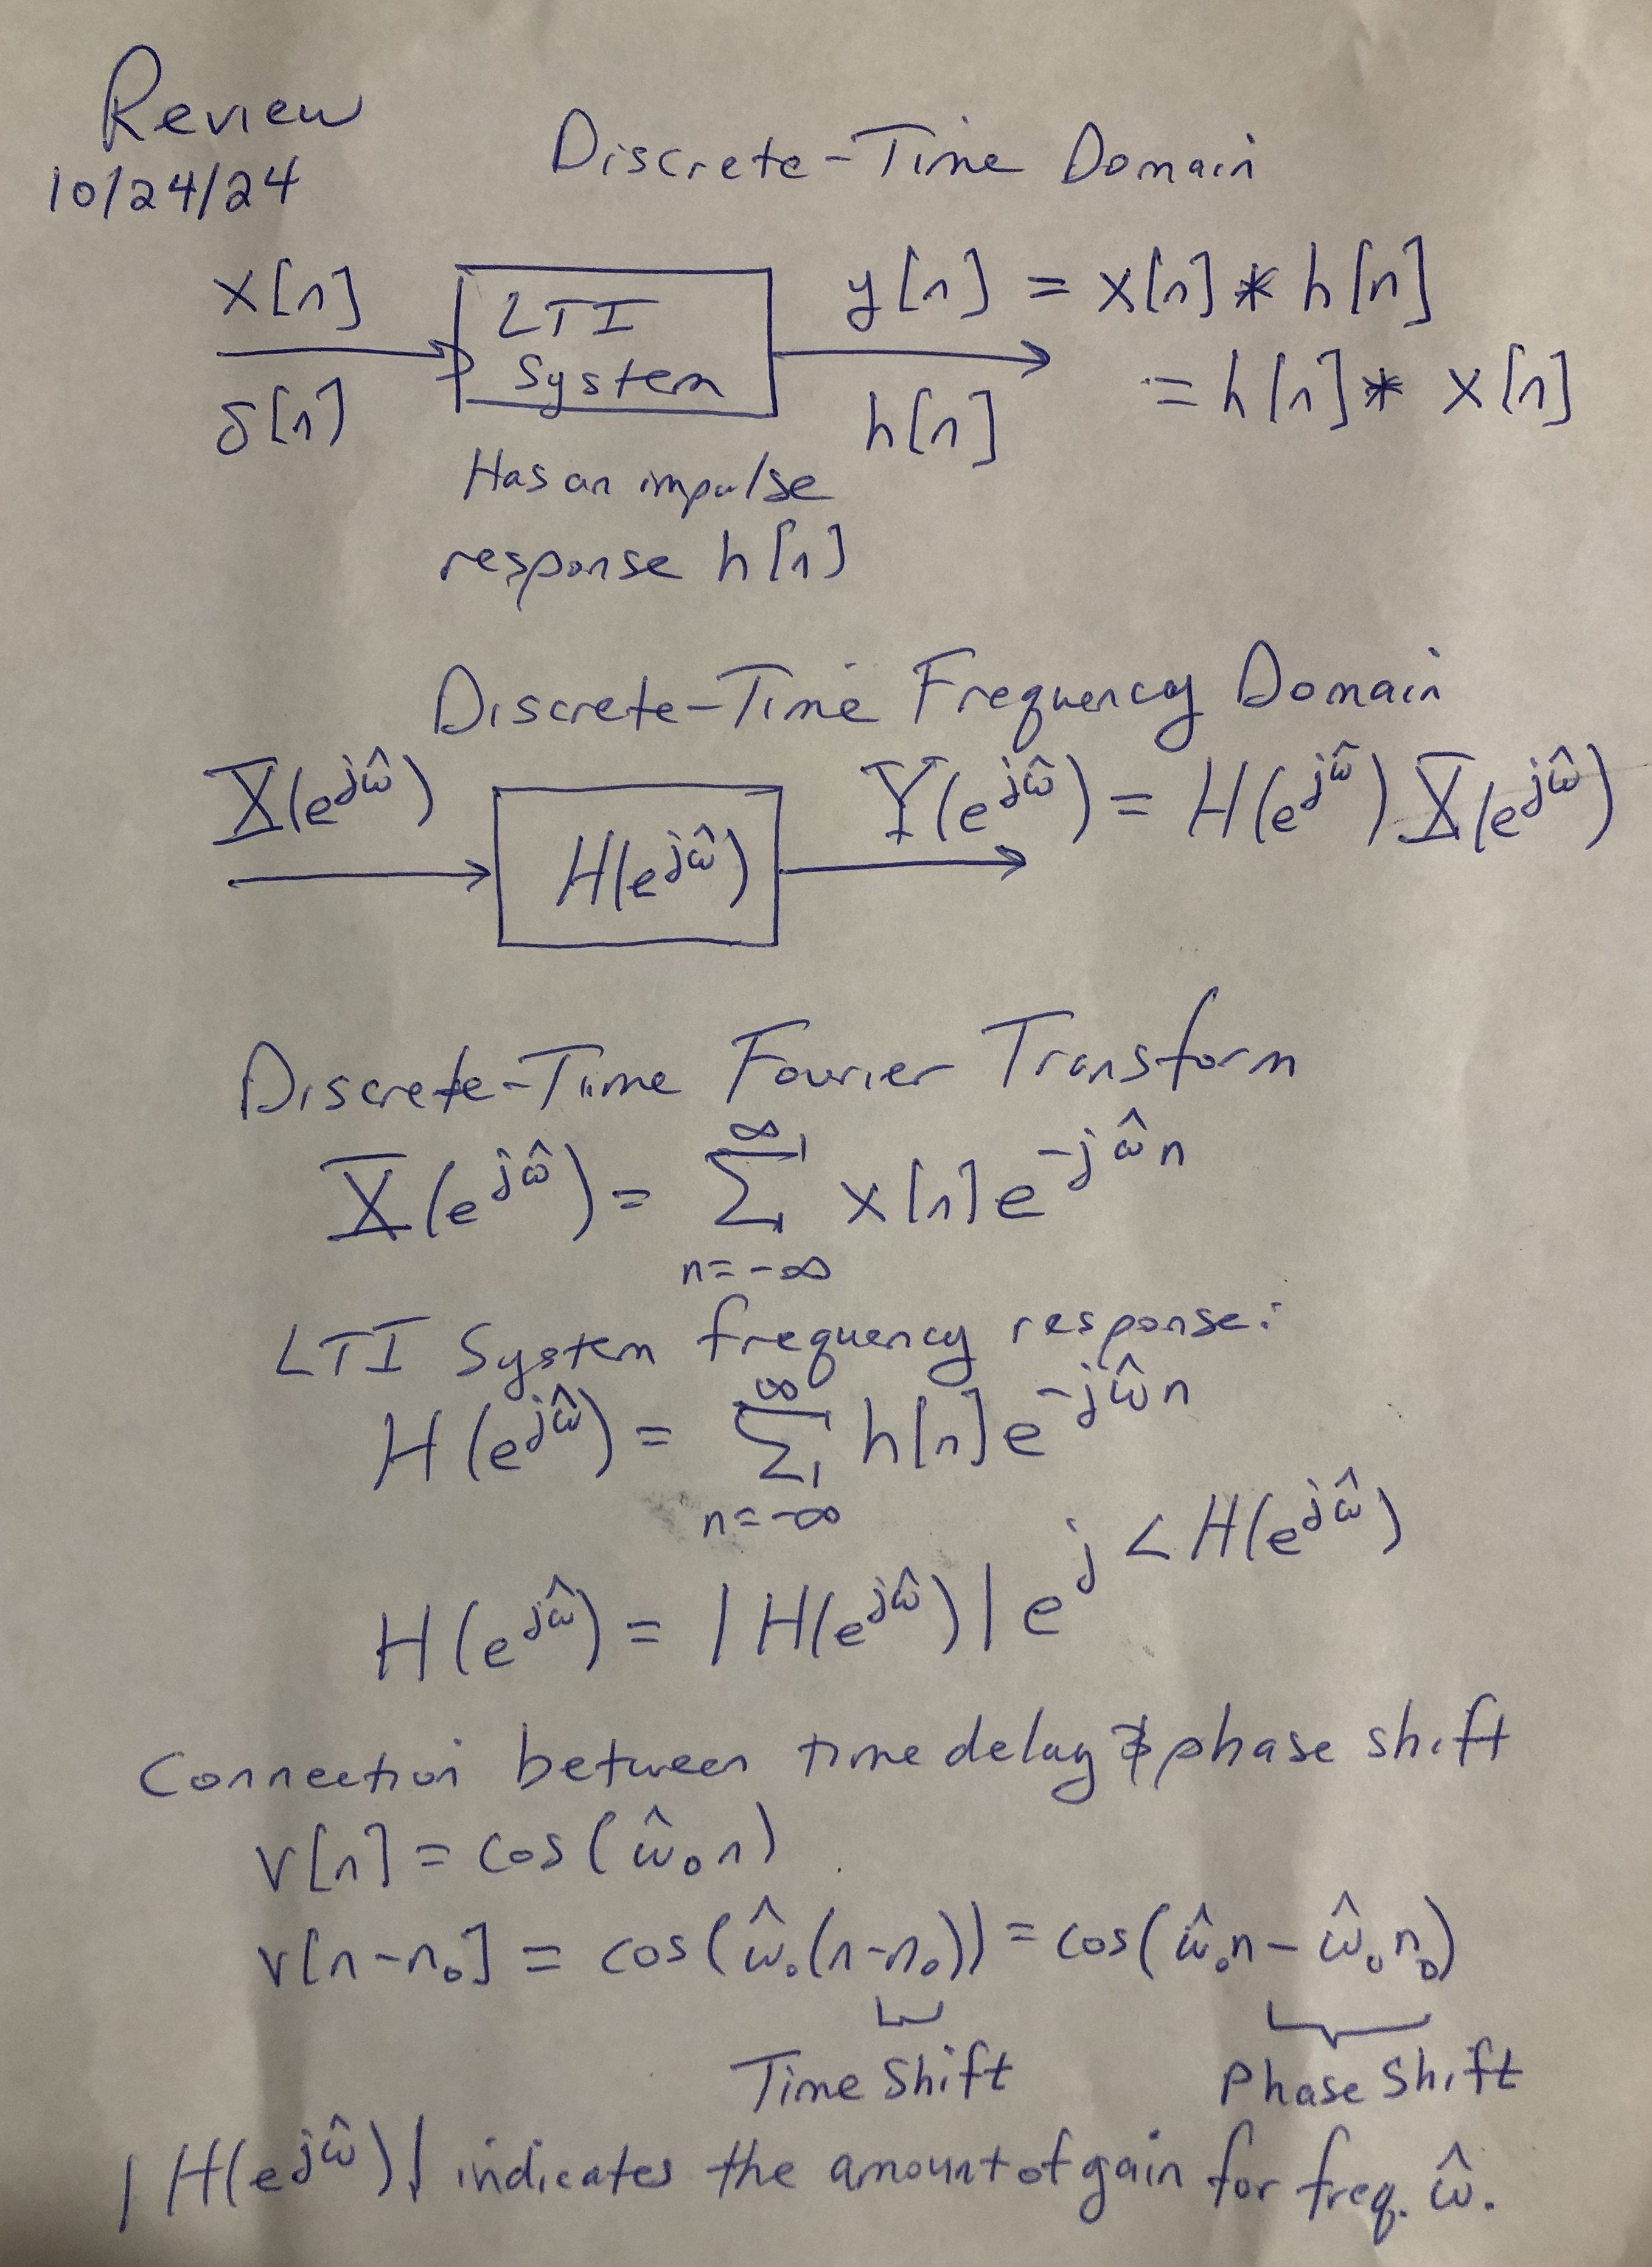 Review
10/24/24
Discrete-Time Domain
x[n]
δ[n]
LTI
System
y[n] = x[n] * h[n]
= h[n] * x[n]
h[n]
Has an impulse
response h[n]
Discrete-Time Frequency Domain
X(e^{jω̂})
H(e^{jω̂})
Y(e^{jω̂}) = H(e^{jω̂}) X(e^{jω̂})
Discrete-Time Fourier Transform
X(e^{jω̂}) = ∑_{n=-∞}^{∞} x[n] e^{-jω̂n}
LTI System frequency response:
H(e^{jω̂}) = ∑_{n=-∞}^{∞} h[n] e^{-jω̂n}
H(e^{jω̂}) = |H(e^{jω̂})| e^{j∠H(e^{jω̂})}
Connection between time delay & phase shift
v[n] = cos(ω̂₀n)
v[n-n₀] = cos(ω̂₀(n-n₀)) = cos(ω̂₀n - ω̂₀n₀)
Time Shift
Phase Shift
|H(e^{jω̂})| indicates the amount of gain for freq. ω̂.